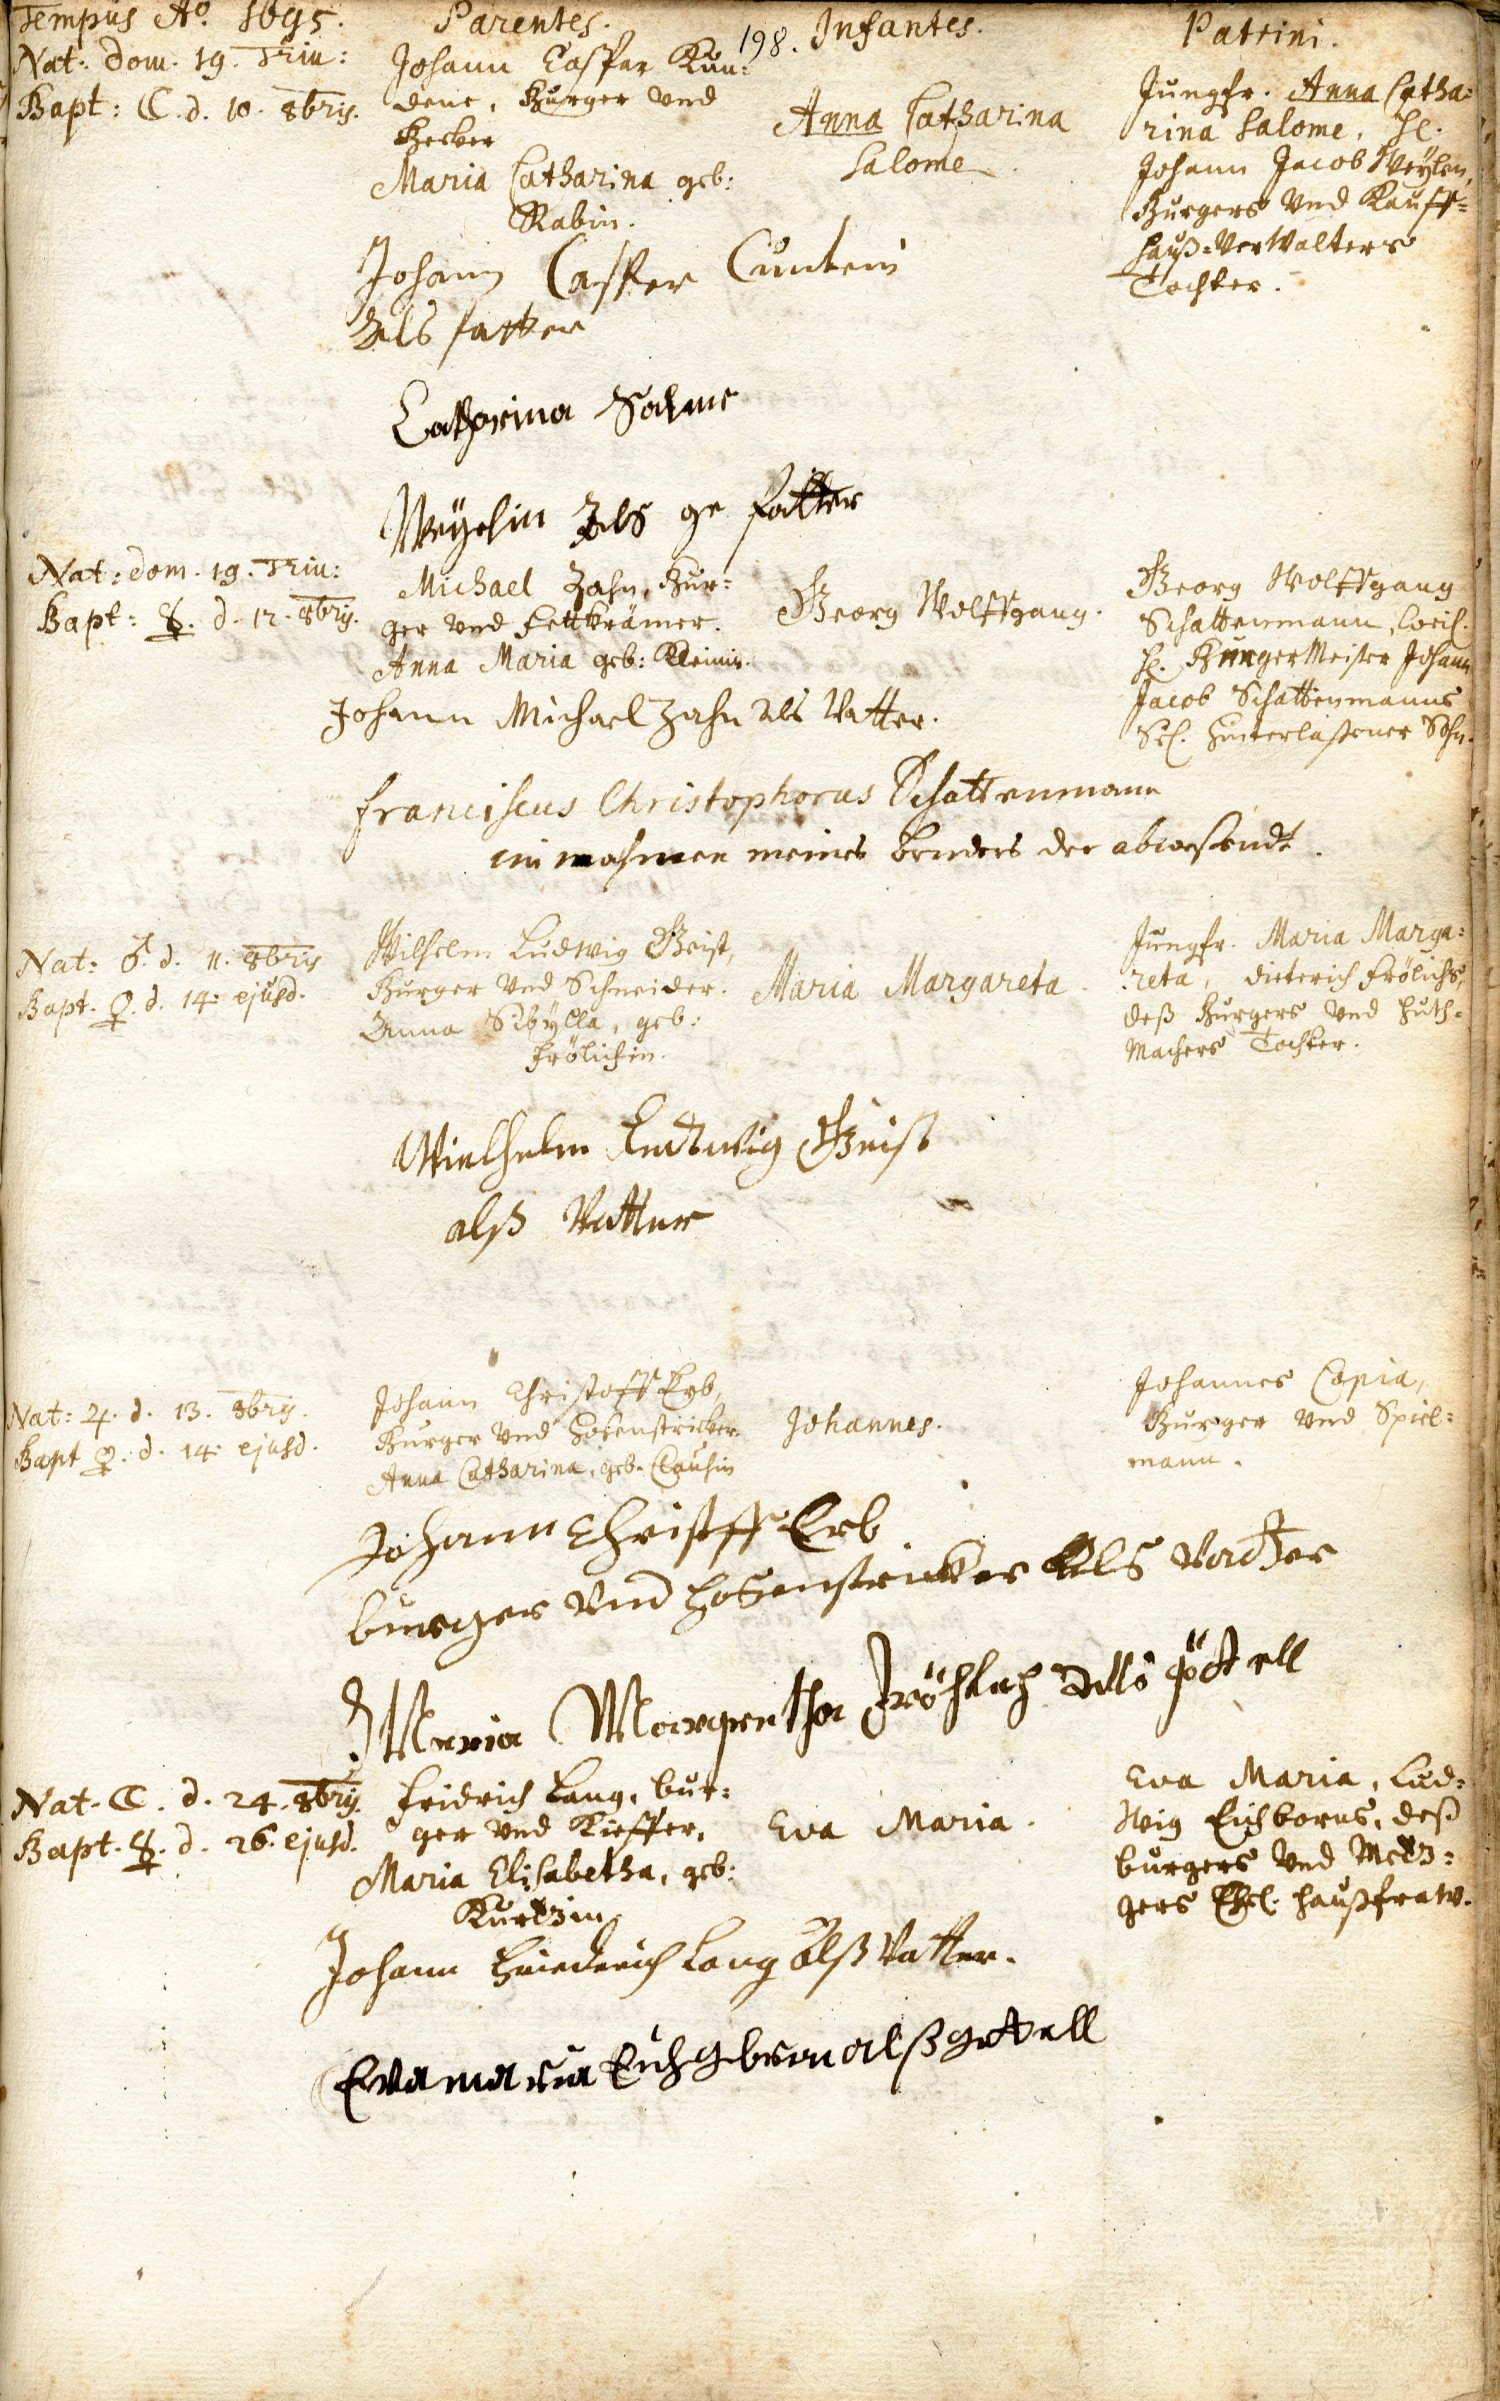 198.
Tempus Aö. 1695.
Parentes.
Infantes.
Patrini.
Nat: dom. 19. Trin:
Bapt: ☾. d. 10. 8bris.
Johann Casper Kun:
dene, Burger und
Becker
Maria Catharina geb:
Rabin.
Anna Catharina
Salome
Jungfr. Anna Catha:
rina Salome, H.
Johann Jacob Weylen,
Burgers und Kauff-
hauß-Verwalters
Tochter.
Johann Casper Cuntein
Als fatter
Catharina Salme
Weyehin Als ge fatter
Nat: dom. 19. Trin:
Bapt: ☿. d. 12. 8bris.
Michael Zahn, Bur:
ger und fettkrämer.
Anna Maria geb: Kleinin.
Georg Wolffgang.
Georg Wolffgang
Schattenmann, weil.
H. BurgerMeister Johann
Jacob Schattenmanns
Sel. hinterlaßener Sohn.
Johann Michael Zahn als Vatter.
franciscus Christophorus Schattenmann
im nahmen meines bruders der abwesendt.
Nat: ♂. d. 11. 8bris
Bapt. ♀. d. 14. ejusd.
Wilhelm Ludwig Geist,
Burger und Schneider.
Anna Sibylla, geb:
Frölichin.
Maria Margareta.
Jungfr. Maria Marga:
reta, dieterich Frölichs,
deß Burgers und huth-
Machers Tochter.
Wielhelm Ludwig Geist
alß Vatter
Nat: ♃. d. 13. 8bris.
Bapt ♀. d. 14. ejusd.
Johann Christoff Erb,
Burger und hosenstricker
Anna Catharina, geb. Clausin
Johannes.
Johannes Copia,
Burger und Spiel:
mann.
Johann Christoff Erb
burger und hosenstricker Als Vatter
J Maria Margretha Fröhlich Alls göttell
Nat. ☾. d. 24. 8bris.
Bapt. ☿. d. 26. ejusd.
Fridrich Lang, bur:
ger und Kieffer,
Maria Elisabetha, geb:
Kurtzin
Eva Maria.
Eva Maria, Lud:
wig Eichborns, deß
burgers und Metz:
gers Ehel. haußfraw.
Johann Friederich Lang alß Vatter.
Eva maria Eichgbornn alß gettell